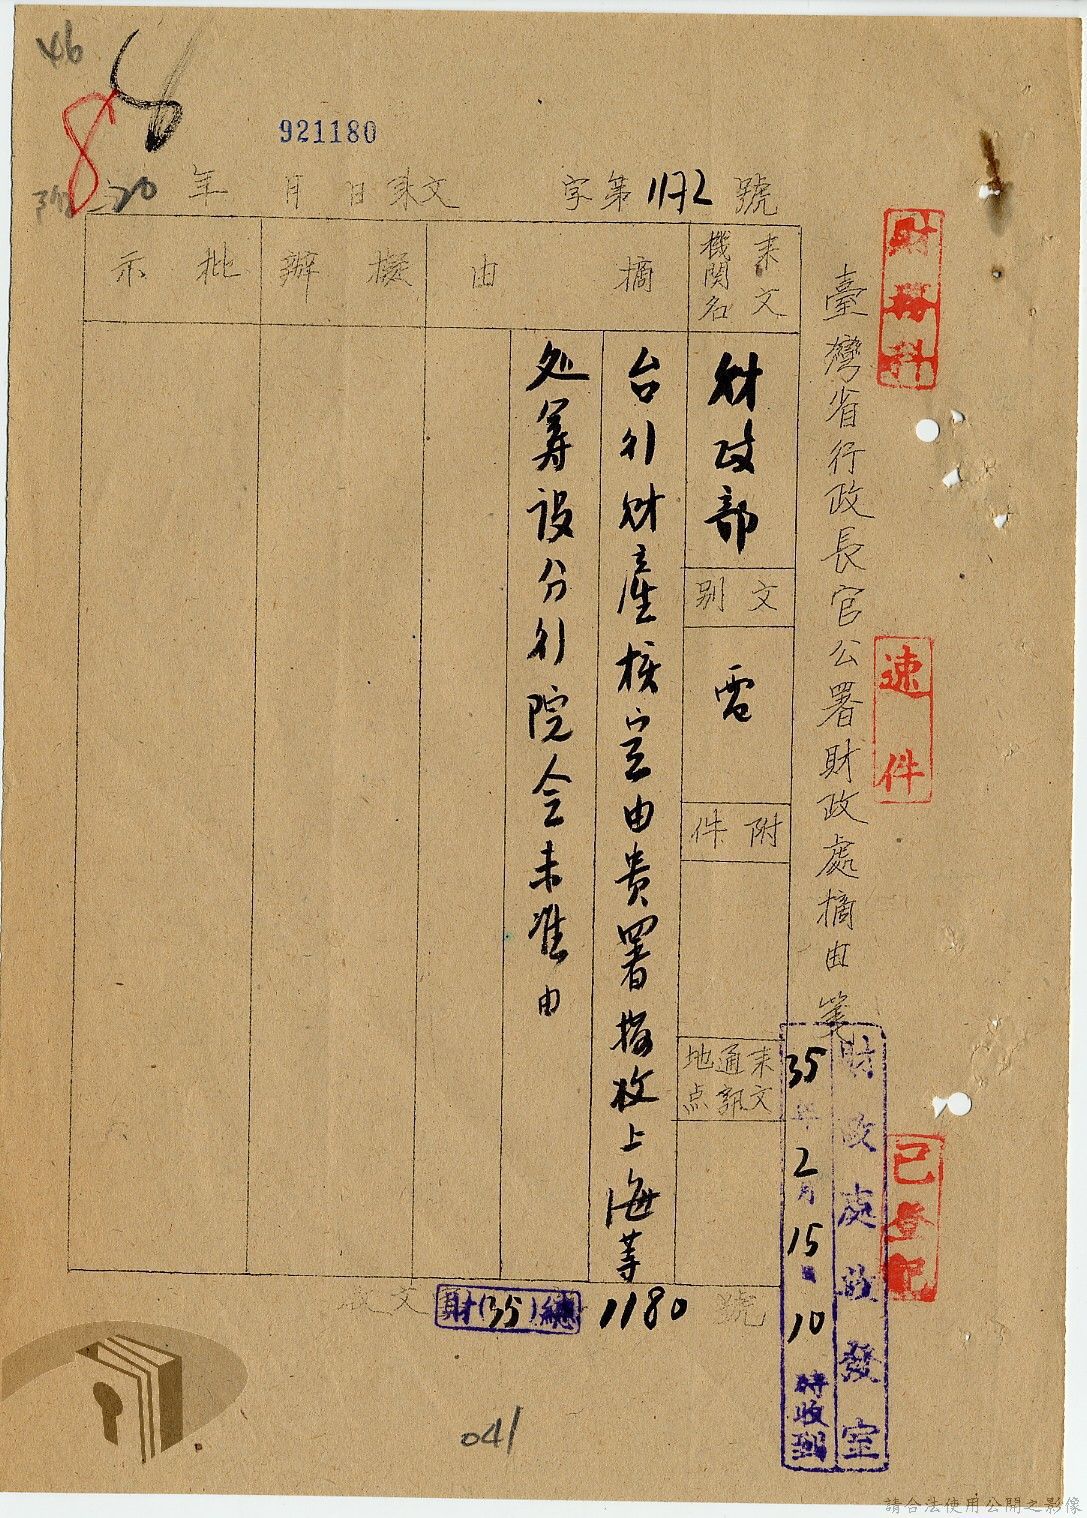 46
921180
20
年 月 日來文 字第1172號
財務科
速件
已登記
臺灣省行政長官公署財政處摘由箋
來文機關名
財政部
文別
電
附件
來文通訊地点
摘由
台行財產核定由貴署接收上海等
处筹設分行院令未准由
擬辦
批示
財政處收發室
35年2月15日10時收到
收文 財(35)總 1180 號
041
請合法使用公開之影像